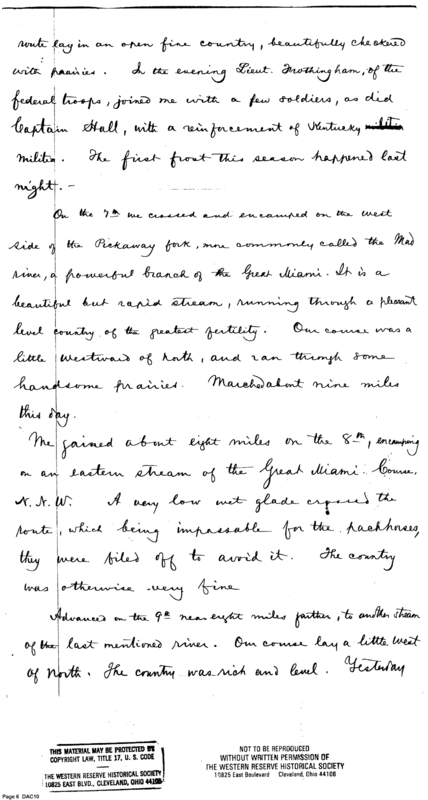 route lay in an open fine country, beautifully checkered
with prairies. In the evening Lieut. Frothingham, of the
federal troops, joined me with a few soldiers, as did
Captain Hall, with a reinforcement of Kentucky militia
militia. The first frost this season happened last
night. -
On the 7th we crossed and encamped on the west
side of the Pickaway fork, more commonly called the Mad
river, a powerful branch of the Great Miami. It is a
beautiful but rapid stream, running through a pleasant
level country of the greatest fertility. Our course was a
little westward of north, and ran through some
handsome prairies. Marched about nine miles
this day.
We gained about eight miles on the 8th, encamping
on an eastern stream of the Great Miami. Course,
N. N. W. A very low wet glade crossed the
route, which being impassable for the packhorses,
they were filed off to avoid it. The country
was otherwise very fine
Advanced on the 9th near eight miles farther, to another stream
of the last mentioned river. Our course lay a little west
of North. The country was rich and level. Yesterday
THIS MATERIAL MAY BE PROTECTED BY
COPYRIGHT LAW, TITLE 17, U. S. CODE
THE WESTERN RESERVE HISTORICAL SOCIETY
10825 EAST BLVD., CLEVELAND, OHIO 44106
NOT TO BE REPRODUCED
WITHOUT WRITTEN PERMISSION OF
THE WESTERN RESERVE HISTORICAL SOCIETY
10825 East Boulevard Cleveland, Ohio 44106
Page 6 DAC10